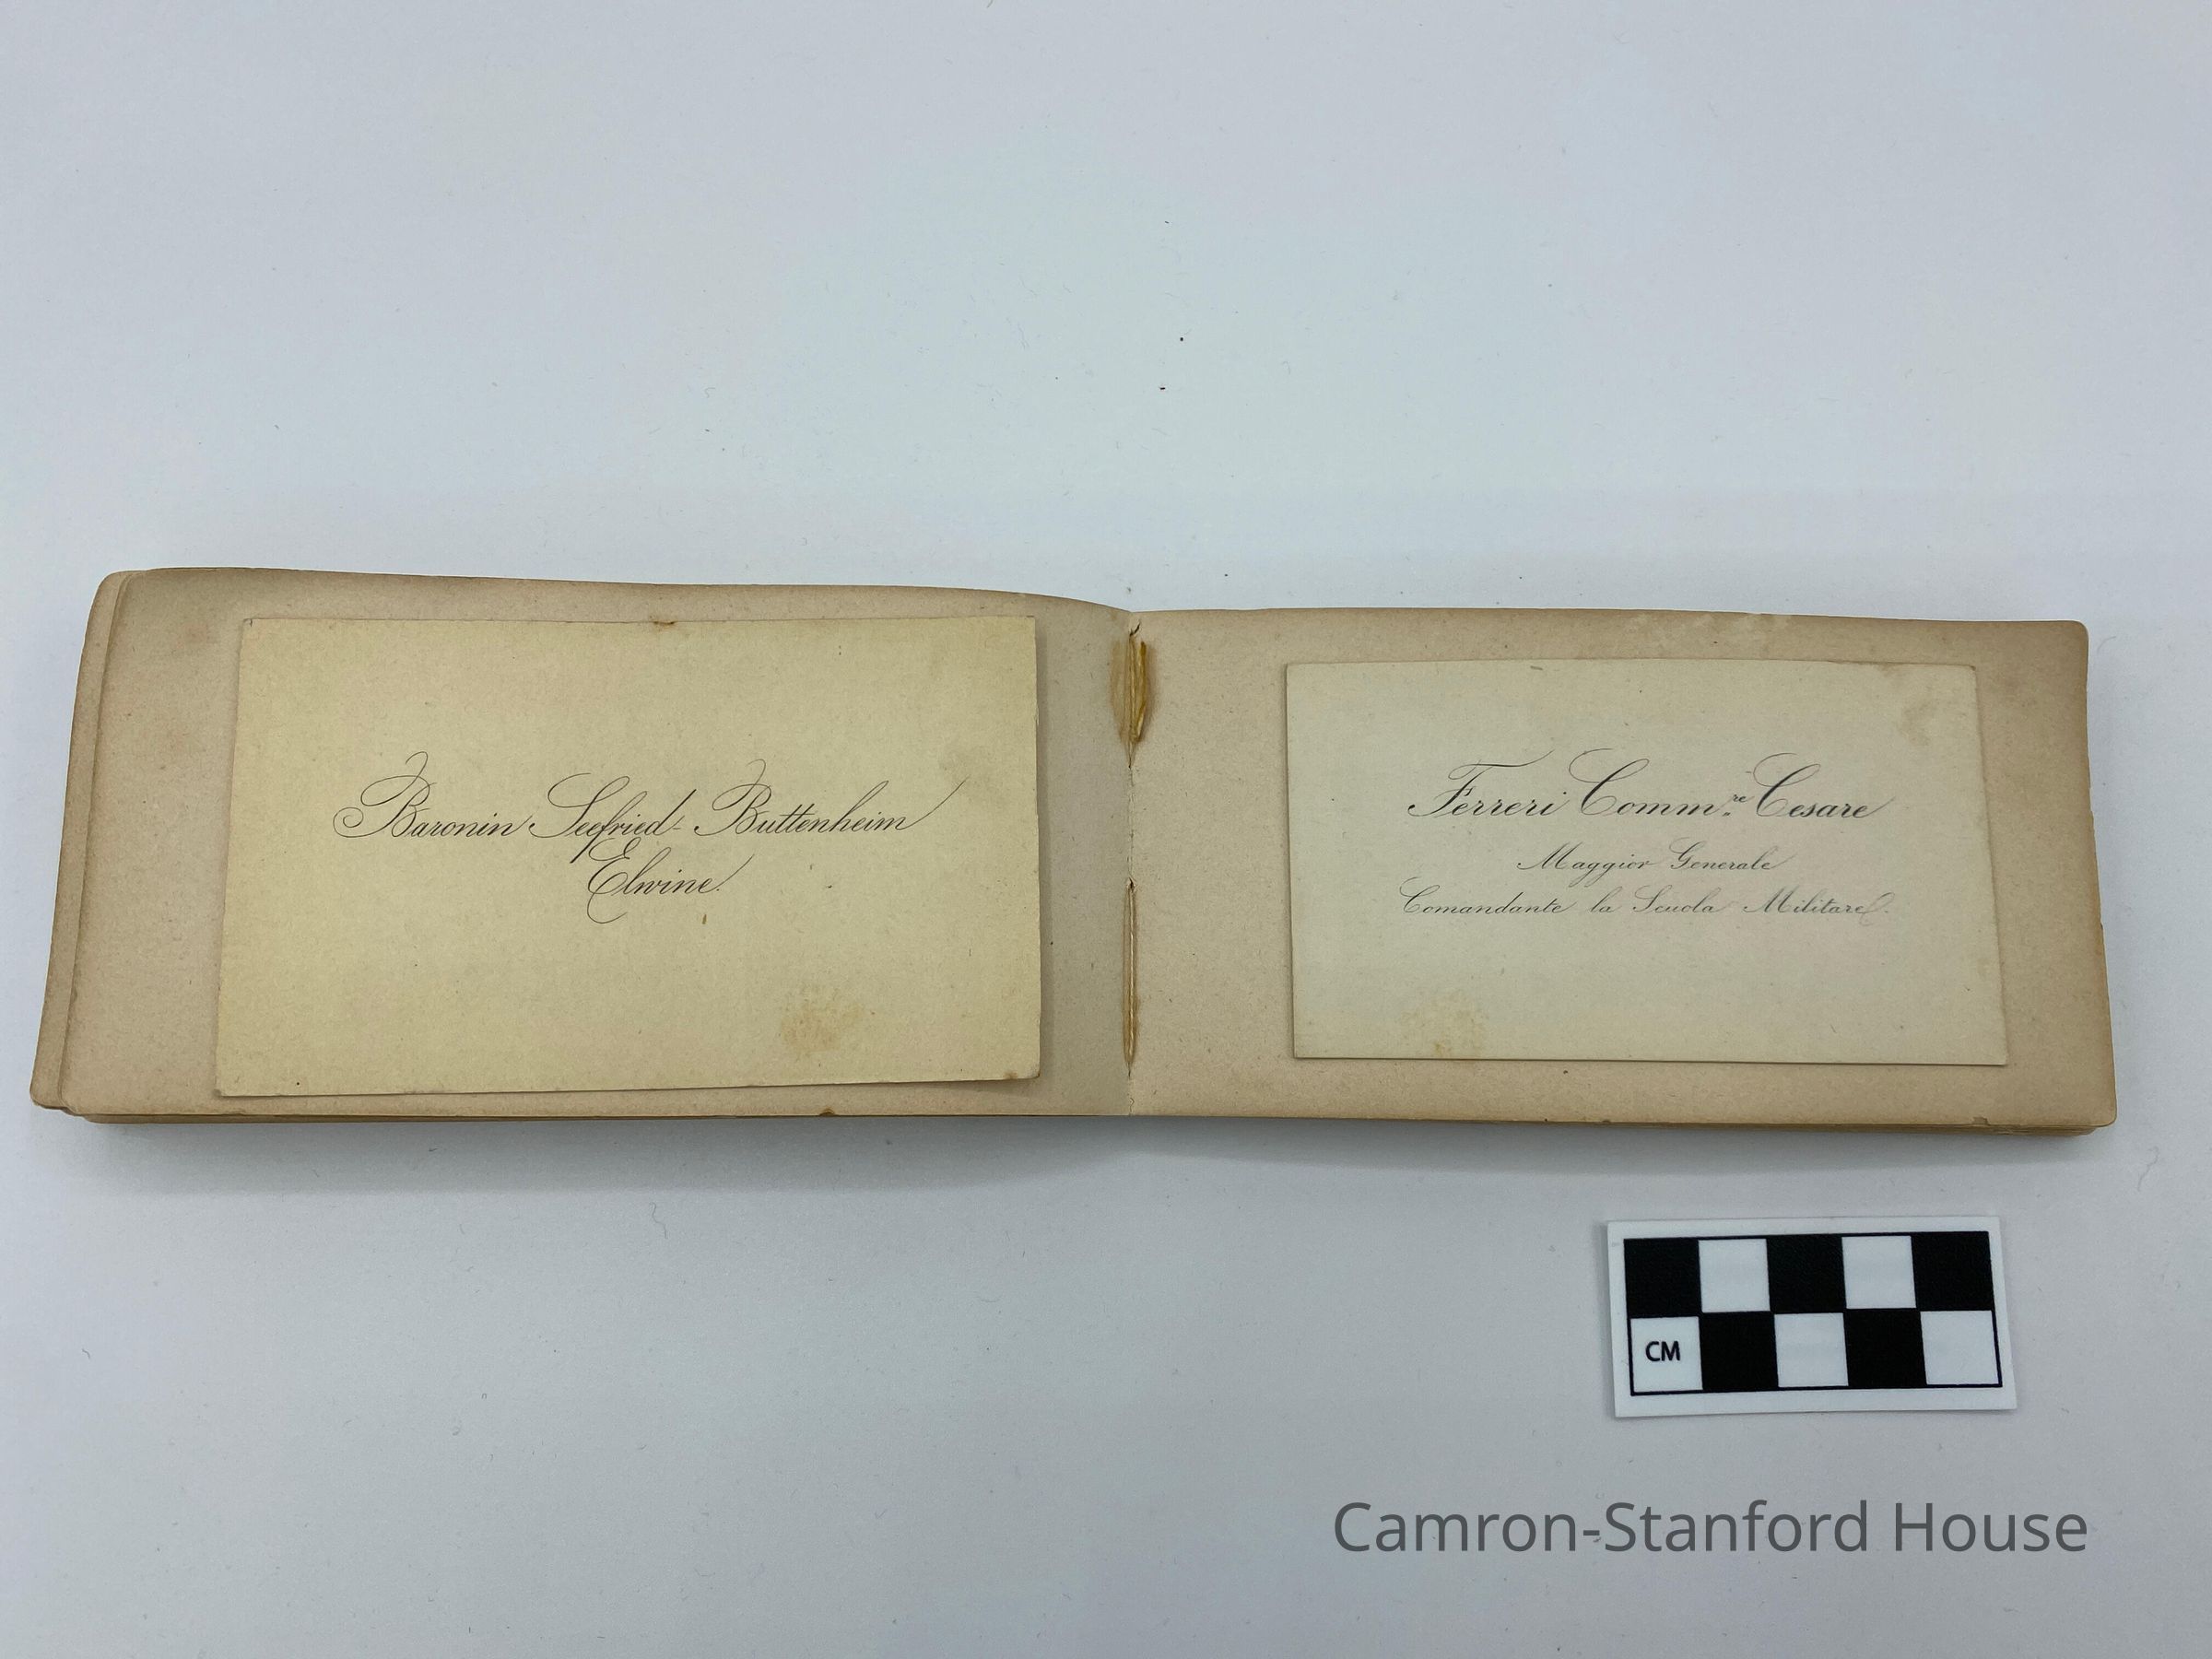 Baronin Seefried-Buttenheim
Elwine.
Ferreri Comm.re Cesare
Maggior Generale
Comandante la Scuola Militare.
CM
Camron-Stanford House